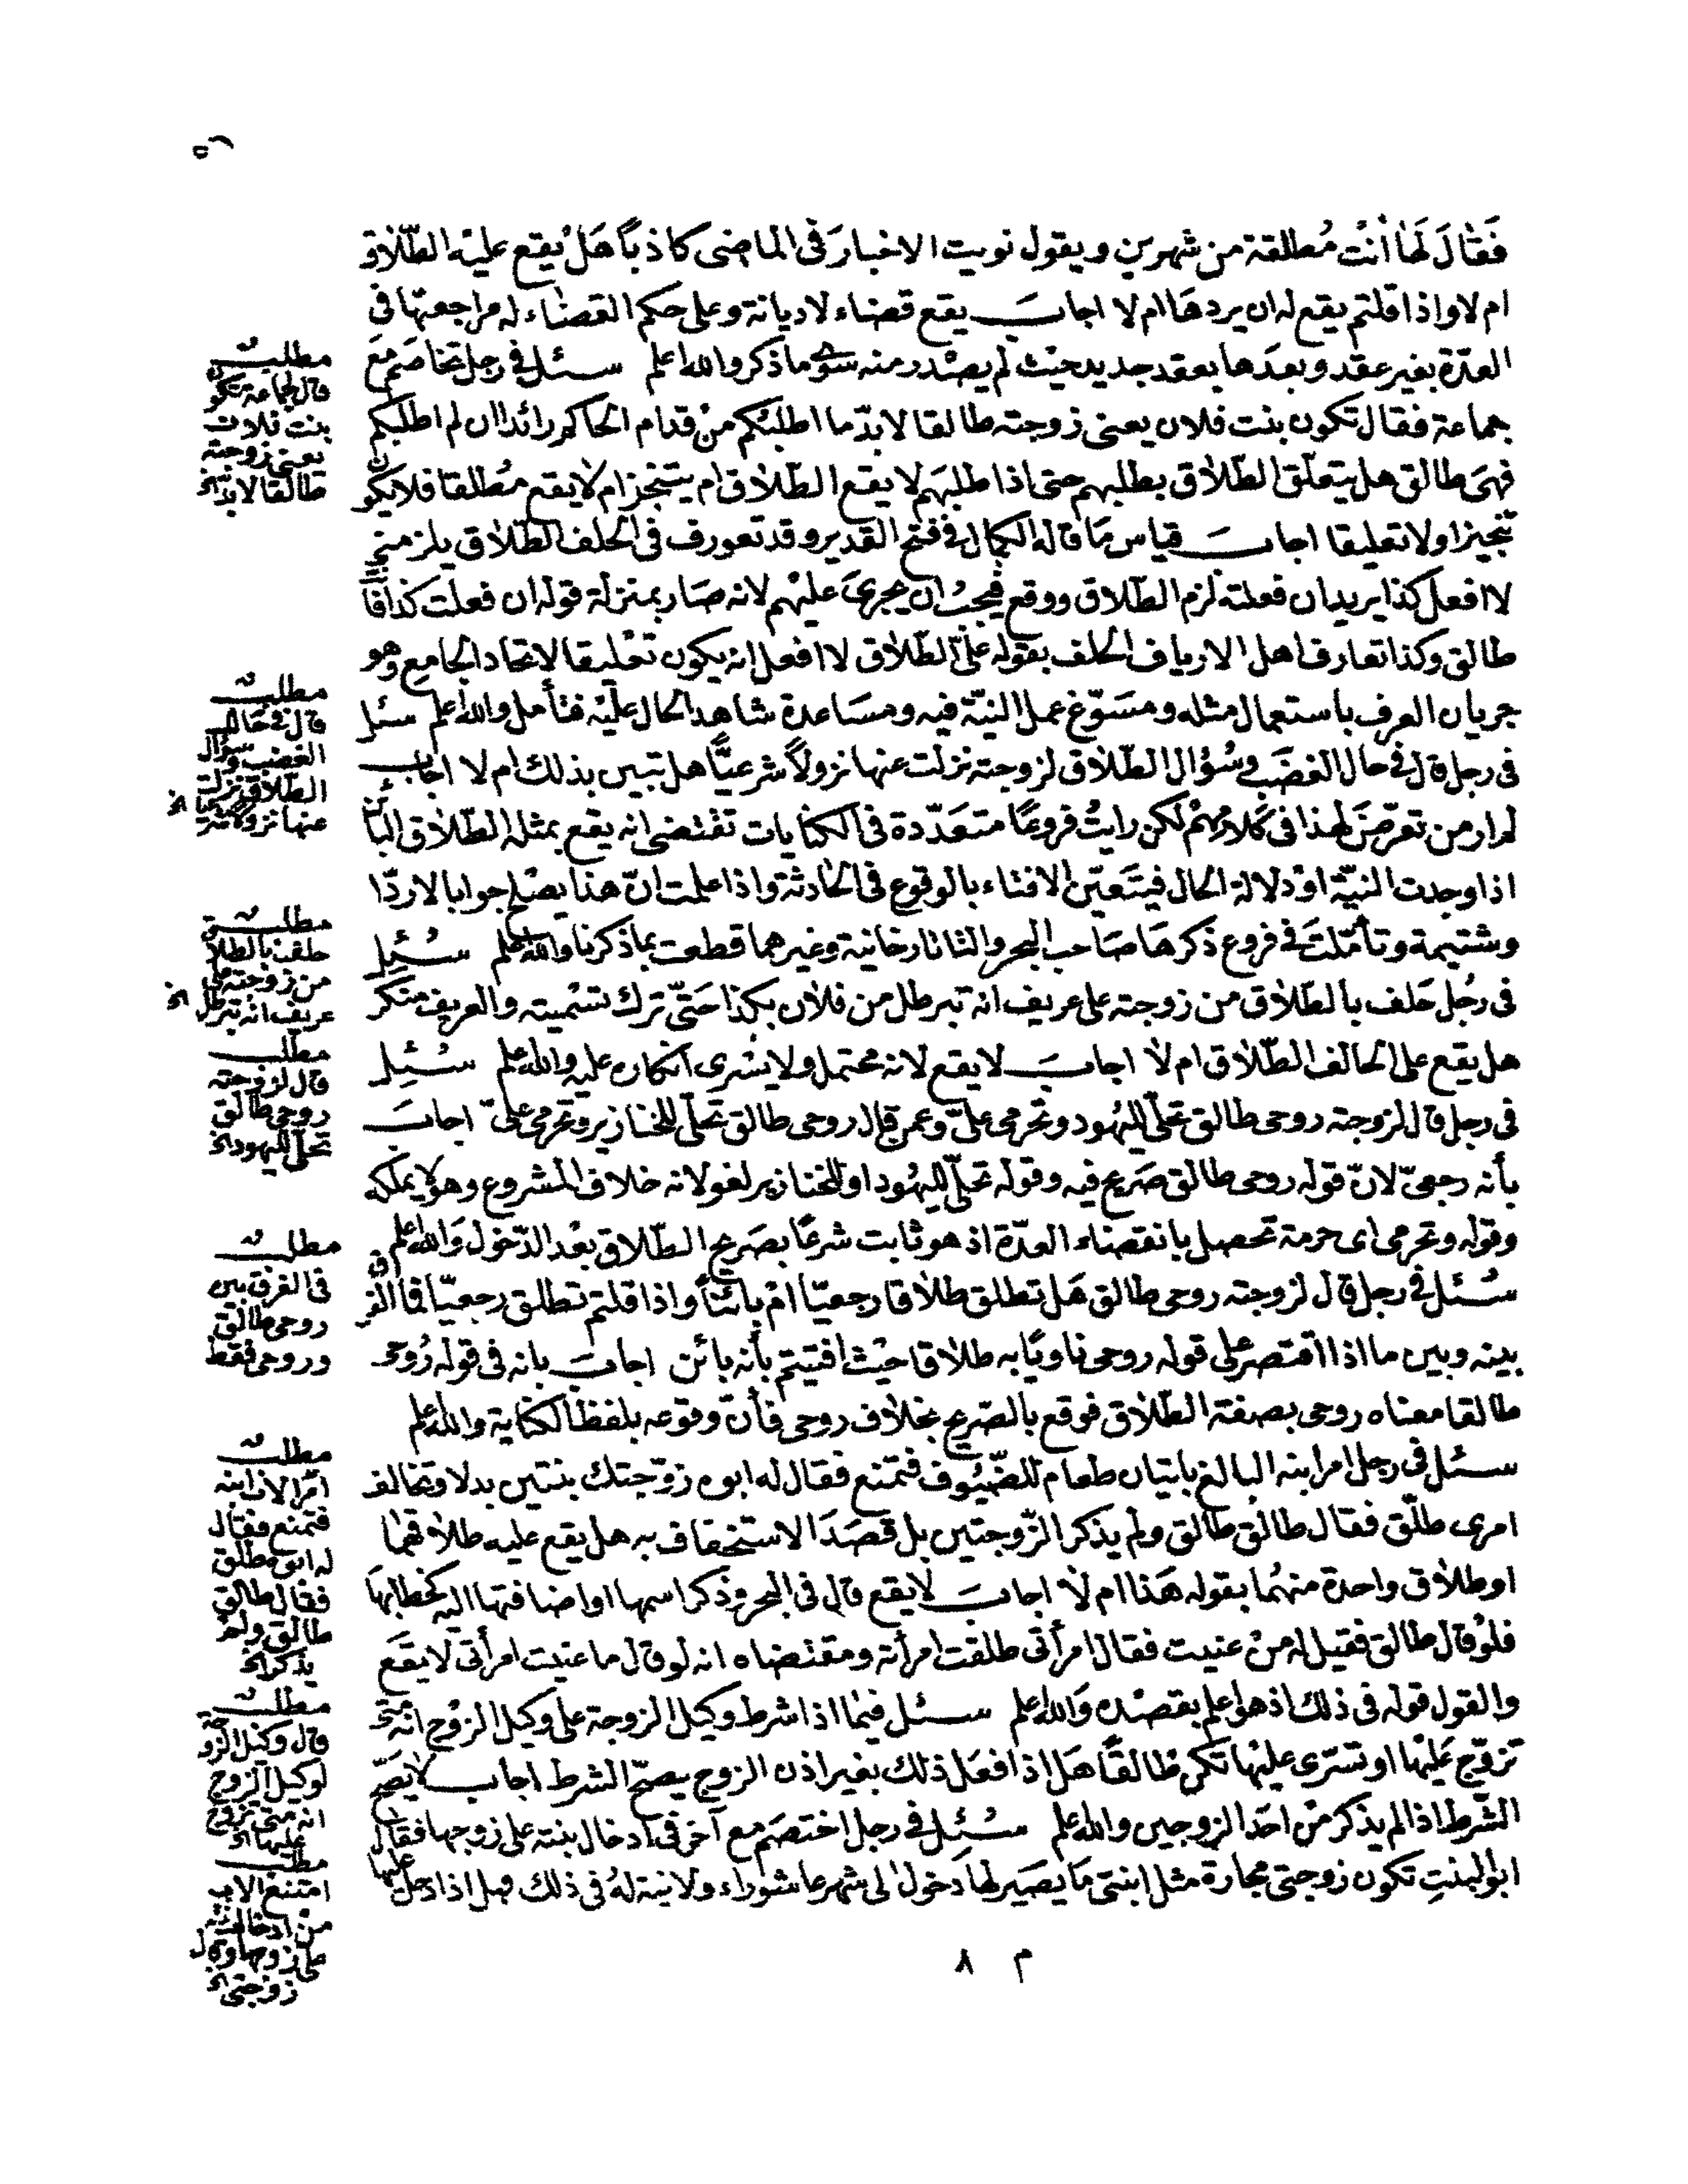 فَقٰالَ لَهٰا أنْت مُطلقة من شهرين ويقول نويت الاخبارَ فى الماضى كاذبًا هَلْ يقع عليْه الطّلاق
ام لا واذا قلتم يقع له ان يردهَا ام لا اجابَ يقع قضاء لا ديانة وعلى حكم القضاء له مراجعتها فى
العدّة بغير عقد وبعدَها بعقد جديد حيْث لم يصْدر منه سوى ما ذكر والله اعلم سئل فى رجل تخاصَم مَعَ
جماعة فقال تكون بنت فلان يعنى زوجته طالقا لا بدّ ما اطلبُكم منْ قدام الحاكم رائدا ان لم اطلبكم
فهىَ طالق هل يتعلّق الطّلاق بطلبهم حتى اذا طلبَهم لا يقع الطّلاق ام يتنجز ام لا يقع مُطلقا فلا يكون
تنجيزا ولا تعليقا اجابَ قياس مَا قاله الكمال فى فتح القدير وقد تعورف فى الحلف الطّلاق يلزمنى
لا افعل كذا يريد ان فعلته لزم الطّلاق ووقع فيجبُ ان يجرىَ عليْهم لانه صَار بمنزلة قوله ان فعلت كذا فانت
طالق وكذا تعارف اهل الارياف الحلف بقوله علىّ الطّلاق لا افعل انه يكون تعْليقا لاتحاد الجامع وهو
جريان العرف باستعمال مثله ومسَوّغ عمل النيّة فيه ومسَاعدة شاهد الحال عليْه فتأمل والله اعلم سئل
فى رجل قال فى حال الغضَب وسُؤال الطّلاق لزوجته نزلت عنها نزولاً شرعيًّا هل تبين بذلك ام لا اجابَ
لم ار من تعرّضَ لهذا فى كلامهمْ لكن رايتُ فروعًا متعَدّدة فى الكنايات تقتضى انه يقع بمثله الطّلاق البائن
اذا وجدت النيّة اوْ دلالة الحال فيتَعيّن الافتاء بالوقوع فى الحادثة واذا علمت انّ هذا يصْلح جوابا لا ردّا
وشتيمة وتأمّلتَ فى فروع ذكرهَا صَاحب البحر والتاتارخانية وغيرهما قطعت بما ذكرنا والله اعلم سُئِل
فى رجُل حَلف بالطّلاق من زوجته على عريف انه تبرطل من فلان بكذا حَتّى ترك تسْميته والعريف منكر
هل يقع على الحالف الطّلاق ام لا اجابَ لا يقع لانه محتمل ولا يسْرى انكاره عليه والله اعلم سُئِل
فى رجل قال لزوجته روحى طالق تحلّى لليهُود وتحرمى علىّ وعمن قال روحى طالق تحلّى للخنازير وتحرمى علىّ اجابَ
بأنه رجعىّ لانّ قوله روحى طالق صَريح فيه وقوله تحلّى لليهُود او للخنازير لغو لانه خلاف المشروع وهو لا يملكه
وقوله وتحرمى اى حرمة تحصل بانقضاء العدّة اذ هو ثابت شرعًا بصَريح الطّلاق بعْد الدّخول وَالله اعلم
سُئل فى رجل قال لزوجته روحى طالق هَل تطلق طلاقا رجعيّا امْ بائنًا واذا قلتم تطلق رجعيّا فما الفرق
بينه وبين ما اذا اقتصر على قوله روحى ناويًا به طلاقا حيْث افتيتم بأنه بائن اجابَ بانه فى قوله رُوحى
طالقا معناه روحى بصفة الطّلاق فوقع بالصّريح بخلاف روحى فأنّ وقوعه بلفظ الكناية والله اعلم
سئل فى رجل امر ابنه البالغ باتيان طعام للضّيُوف فتمنع فقال له ابوه زوّجتك بنتين بدلا وتخالف
امرى طلّق فقال طالق طالق ولم يذكر الزّوجتين بل قصَدَ الاستخفاف به هل يقع عليه طلاقهمٰا
او طلاق واحدة منهُما بقوله هَذا ام لا اجابَ لا يقع قال فى البحر وذكر اسمها او اضافتها اليه كخطابهَا
فلوْ قال طالق فقيل له منْ عنيت فقال امرأتى طلقت امرأته ومقتضاه انه لو قال ما عنيت امرأتى لا يقَع
والقول قوله فى ذلك اذ هو اعلم بقصْده وَالله اعلم سئل فيمٰا اذا شرط وكيل الزوجة على وكيل الزوْج انه متى
تزوّج عَليْها او تسَرّى عليْها تكن طالقًا هَل اذا فعَل ذلك بغير اذن الزوج يصحّ الشرط اجابَ لا يصَحّ
الشّرط اذا لم يذكر منْ احَد الزوجين والله اعلم سُئِل فى رجل اختصَم مع آخر فى ادخال بنته على زوجها فقال
ابو البنتِ تكون زوجتى مجارة مثل ابنتى مَا يصَير لهَا دَخول الى شهر عاشوراء ولا نية لهُ فى ذلك فهل اذا دخل عليها
م ٨
مطلب
قال لجماعة تكون
بنت فلان
يعنى زوجته
طالقا لا بد الخ
مطلب
قال فى حال
الغضب وسؤال
الطلاق نزلت
عنها نزولا شرعيا الخ
مطلب
حلف بالطلاق
من زوجته على
عريف انه تبرطل الخ
مطلب
قال لزوجته
روحى طالق
تحلى لليهود الخ
مطلب
فى الفرق بين
روحى طالق
وروحى فقط
مطلب
امر الاب ابنه
فتمنع فقال
له ابوه طلق
فقال طالق
طالق ولم
يذكر الخ
مطلب
قال وكيل الزوجة
لوكيل الزوج
انه متى تزوج
عليها الخ
مطلب
امتنع الاب
من ادخال بنته
على زوجها وقال
زوجتى الخ